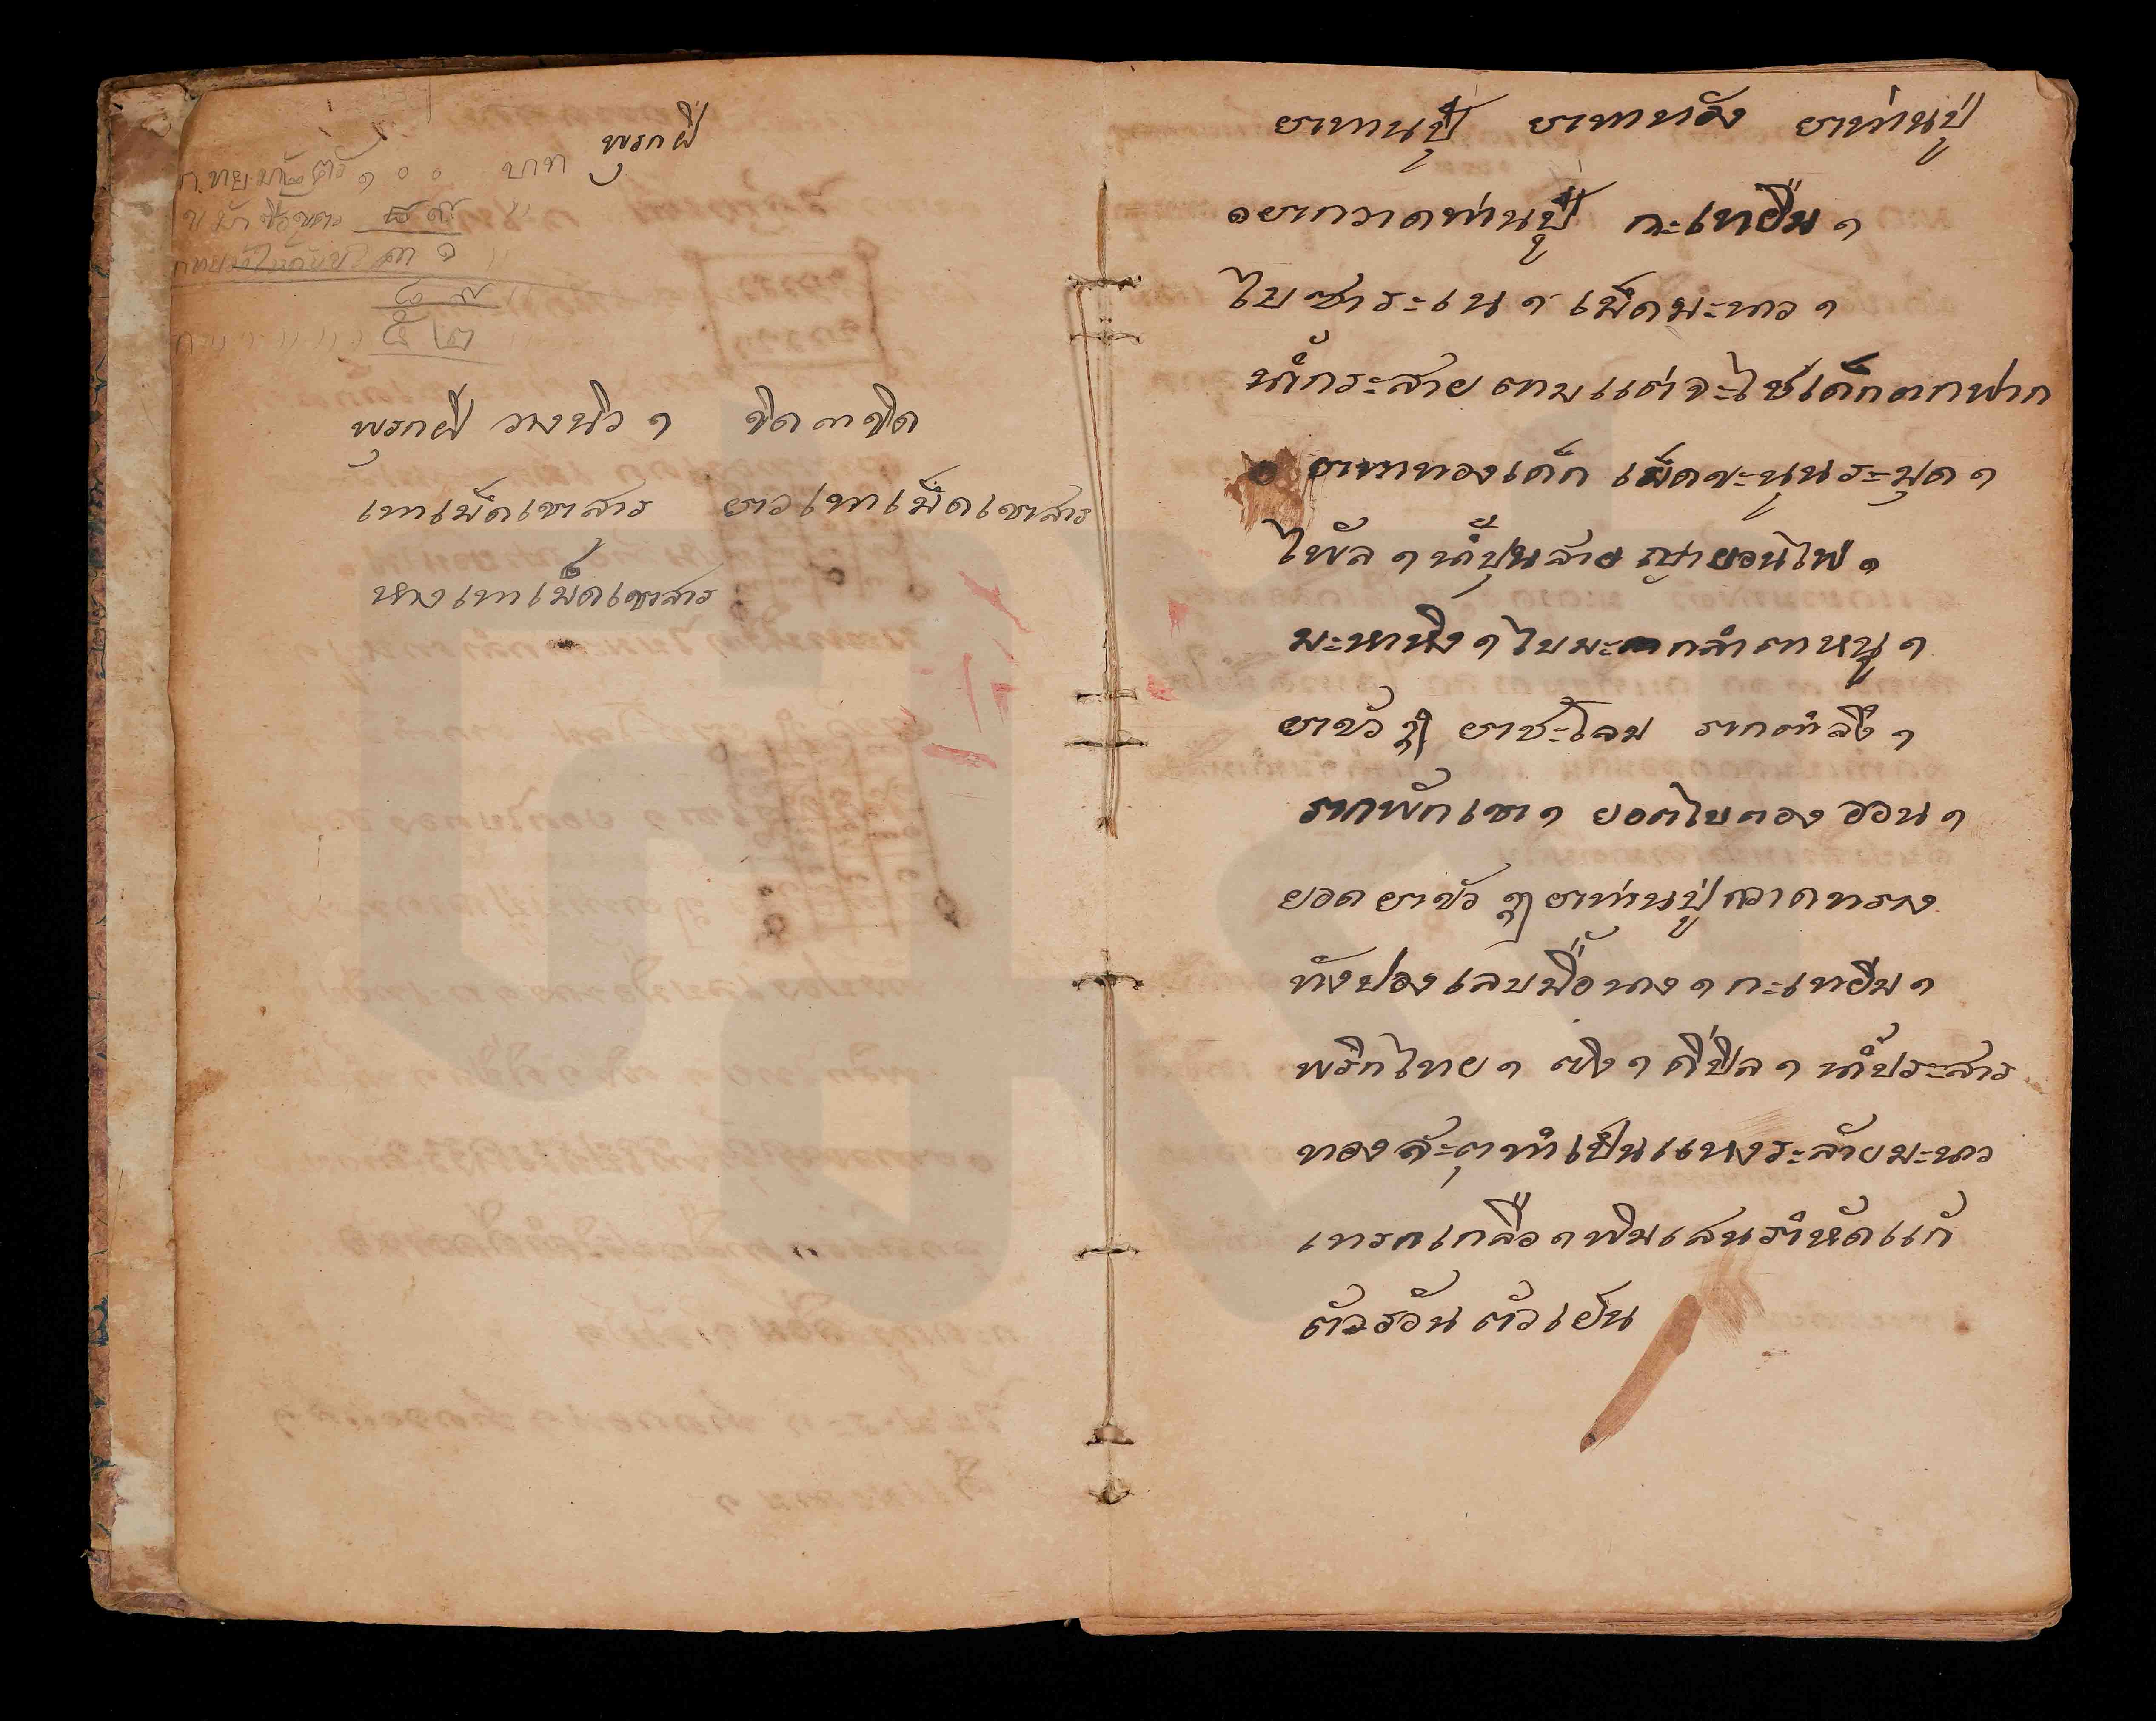 พุรกฝี
๑๐๐ บาท
พุรกฝี วางนิว ๑ ขิด ๓ ขิด
เทาเม็ดเขาสาร ยาวเทาเม็ดเขาสาร
นางเทาเม็ดเขาสาร
ยาทานปู่ ยาทาทอัง ยาท่านปู่
๏ยากวาดท่านปู่ กะเทยีม ๑
ไบซาระแน ๑ เม็ดมะนาว ๑
น้ำกระสายตามแต่จะไช้เด็กตกฟาก
๏ ยาทาทองเด็ก เม็ดขะนุนระมุด ๑
ไพ้ล ๑ น้ำปูนส้าย ญ่ายอนไฟ ๑
มะหาหิง ๑ ไบมะกล่ำตาหนู ๑
ยาขัว ๆ ยาชะโลม รากตำลึง ๑
รากพักเขา ๑ ยอดไบตองออน ๑
ยอดยาขัว ๆ ยาท่านปู่กวาดทราง
ทังปองเลบมื้อนาง ๑ กะเทยีม ๑
พริกไทย ๑ ขิง ๑ ดีปีล ๑ น้ำประสาร
ทองสะตุทำเป็นแทงระล้ายมะนาว
เทรกเกลือ ๑ พิมเสนรำหัดแก้
ตัวร้อน ตัวเย็น